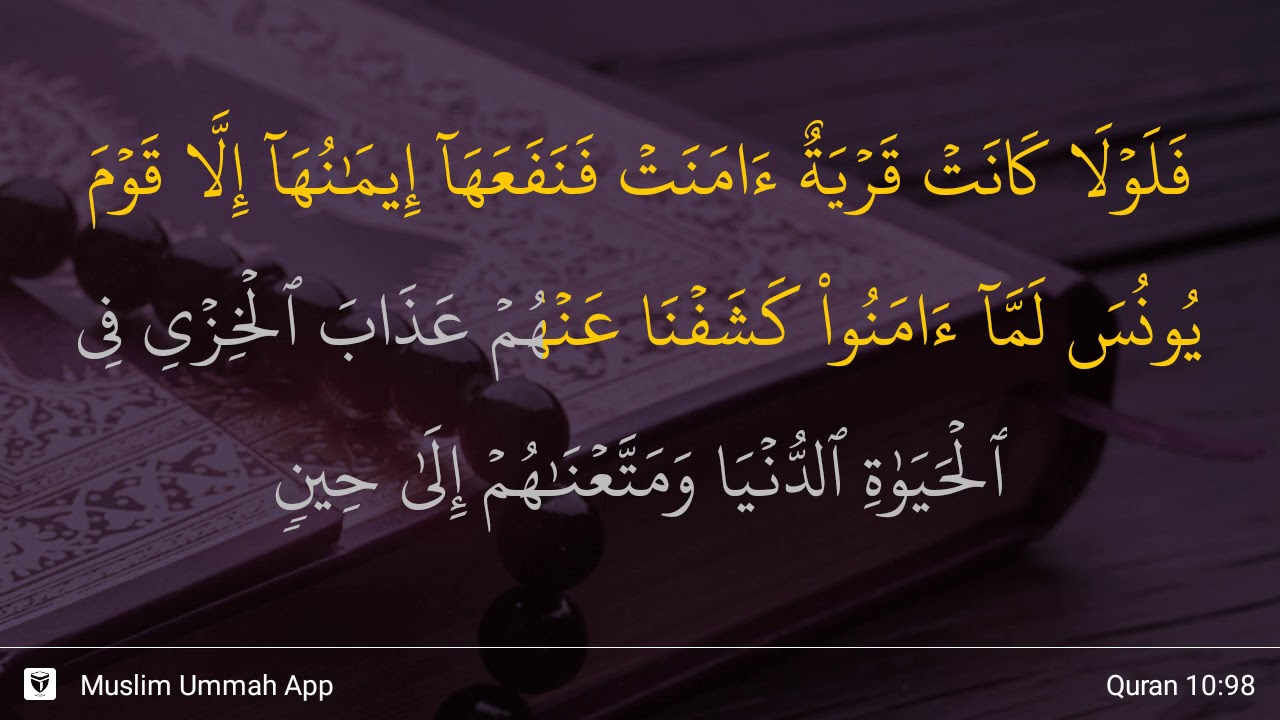 فَلَوْلَا كَانَتْ قَرْيَةٌ ءَامَنَتْ فَنَفَعَهَآ إِيمَـٰنُهَآ إِلَّا قَوْمَ
يُونُسَ لَمَّآ ءَامَنُوا۟ كَشَفْنَا عَنْهُمْ عَذَابَ ٱلْخِزْىِ فِى
ٱلْحَيَوٰةِ ٱلدُّنْيَا وَمَتَّعْنَـٰهُمْ إِلَىٰ حِينٍ
Muslim Ummah App
Quran 10:98